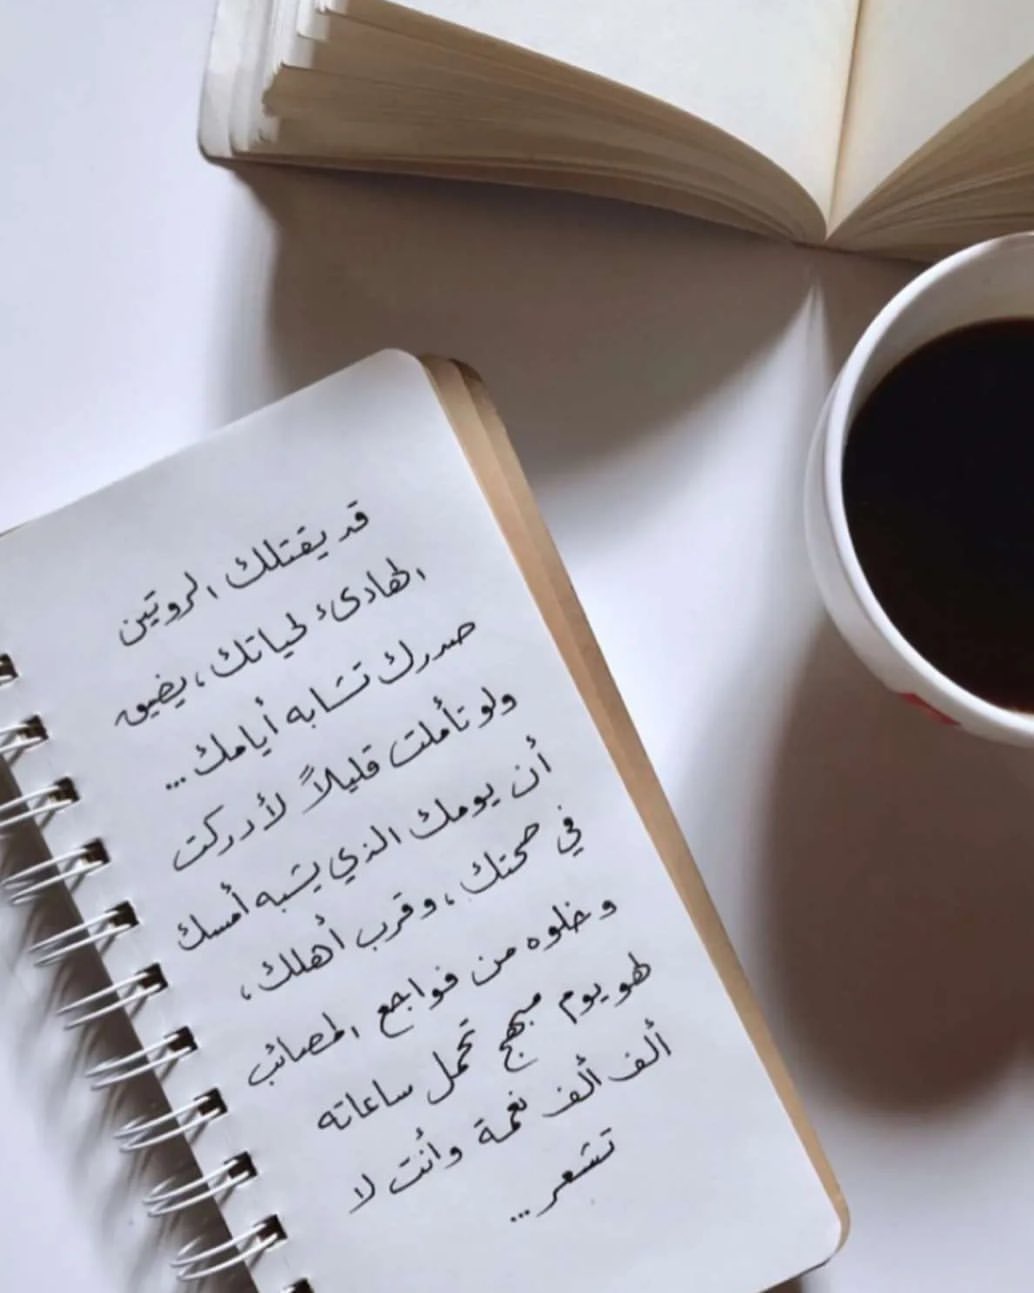 قد يقتلك الروتين
الهادئ لحياتك، يضيق
صدرك تشابه أيامك...
ولو تأملت قليلاً لأدركت
أن يومك الذي يشبه أمسك
في صحتك، وقرب أهلك،
وخلوه من فواجع المصائب
لهو يوم مبهج تحمل ساعاته
ألف ألف نعمة وأنت لا
تشعر...